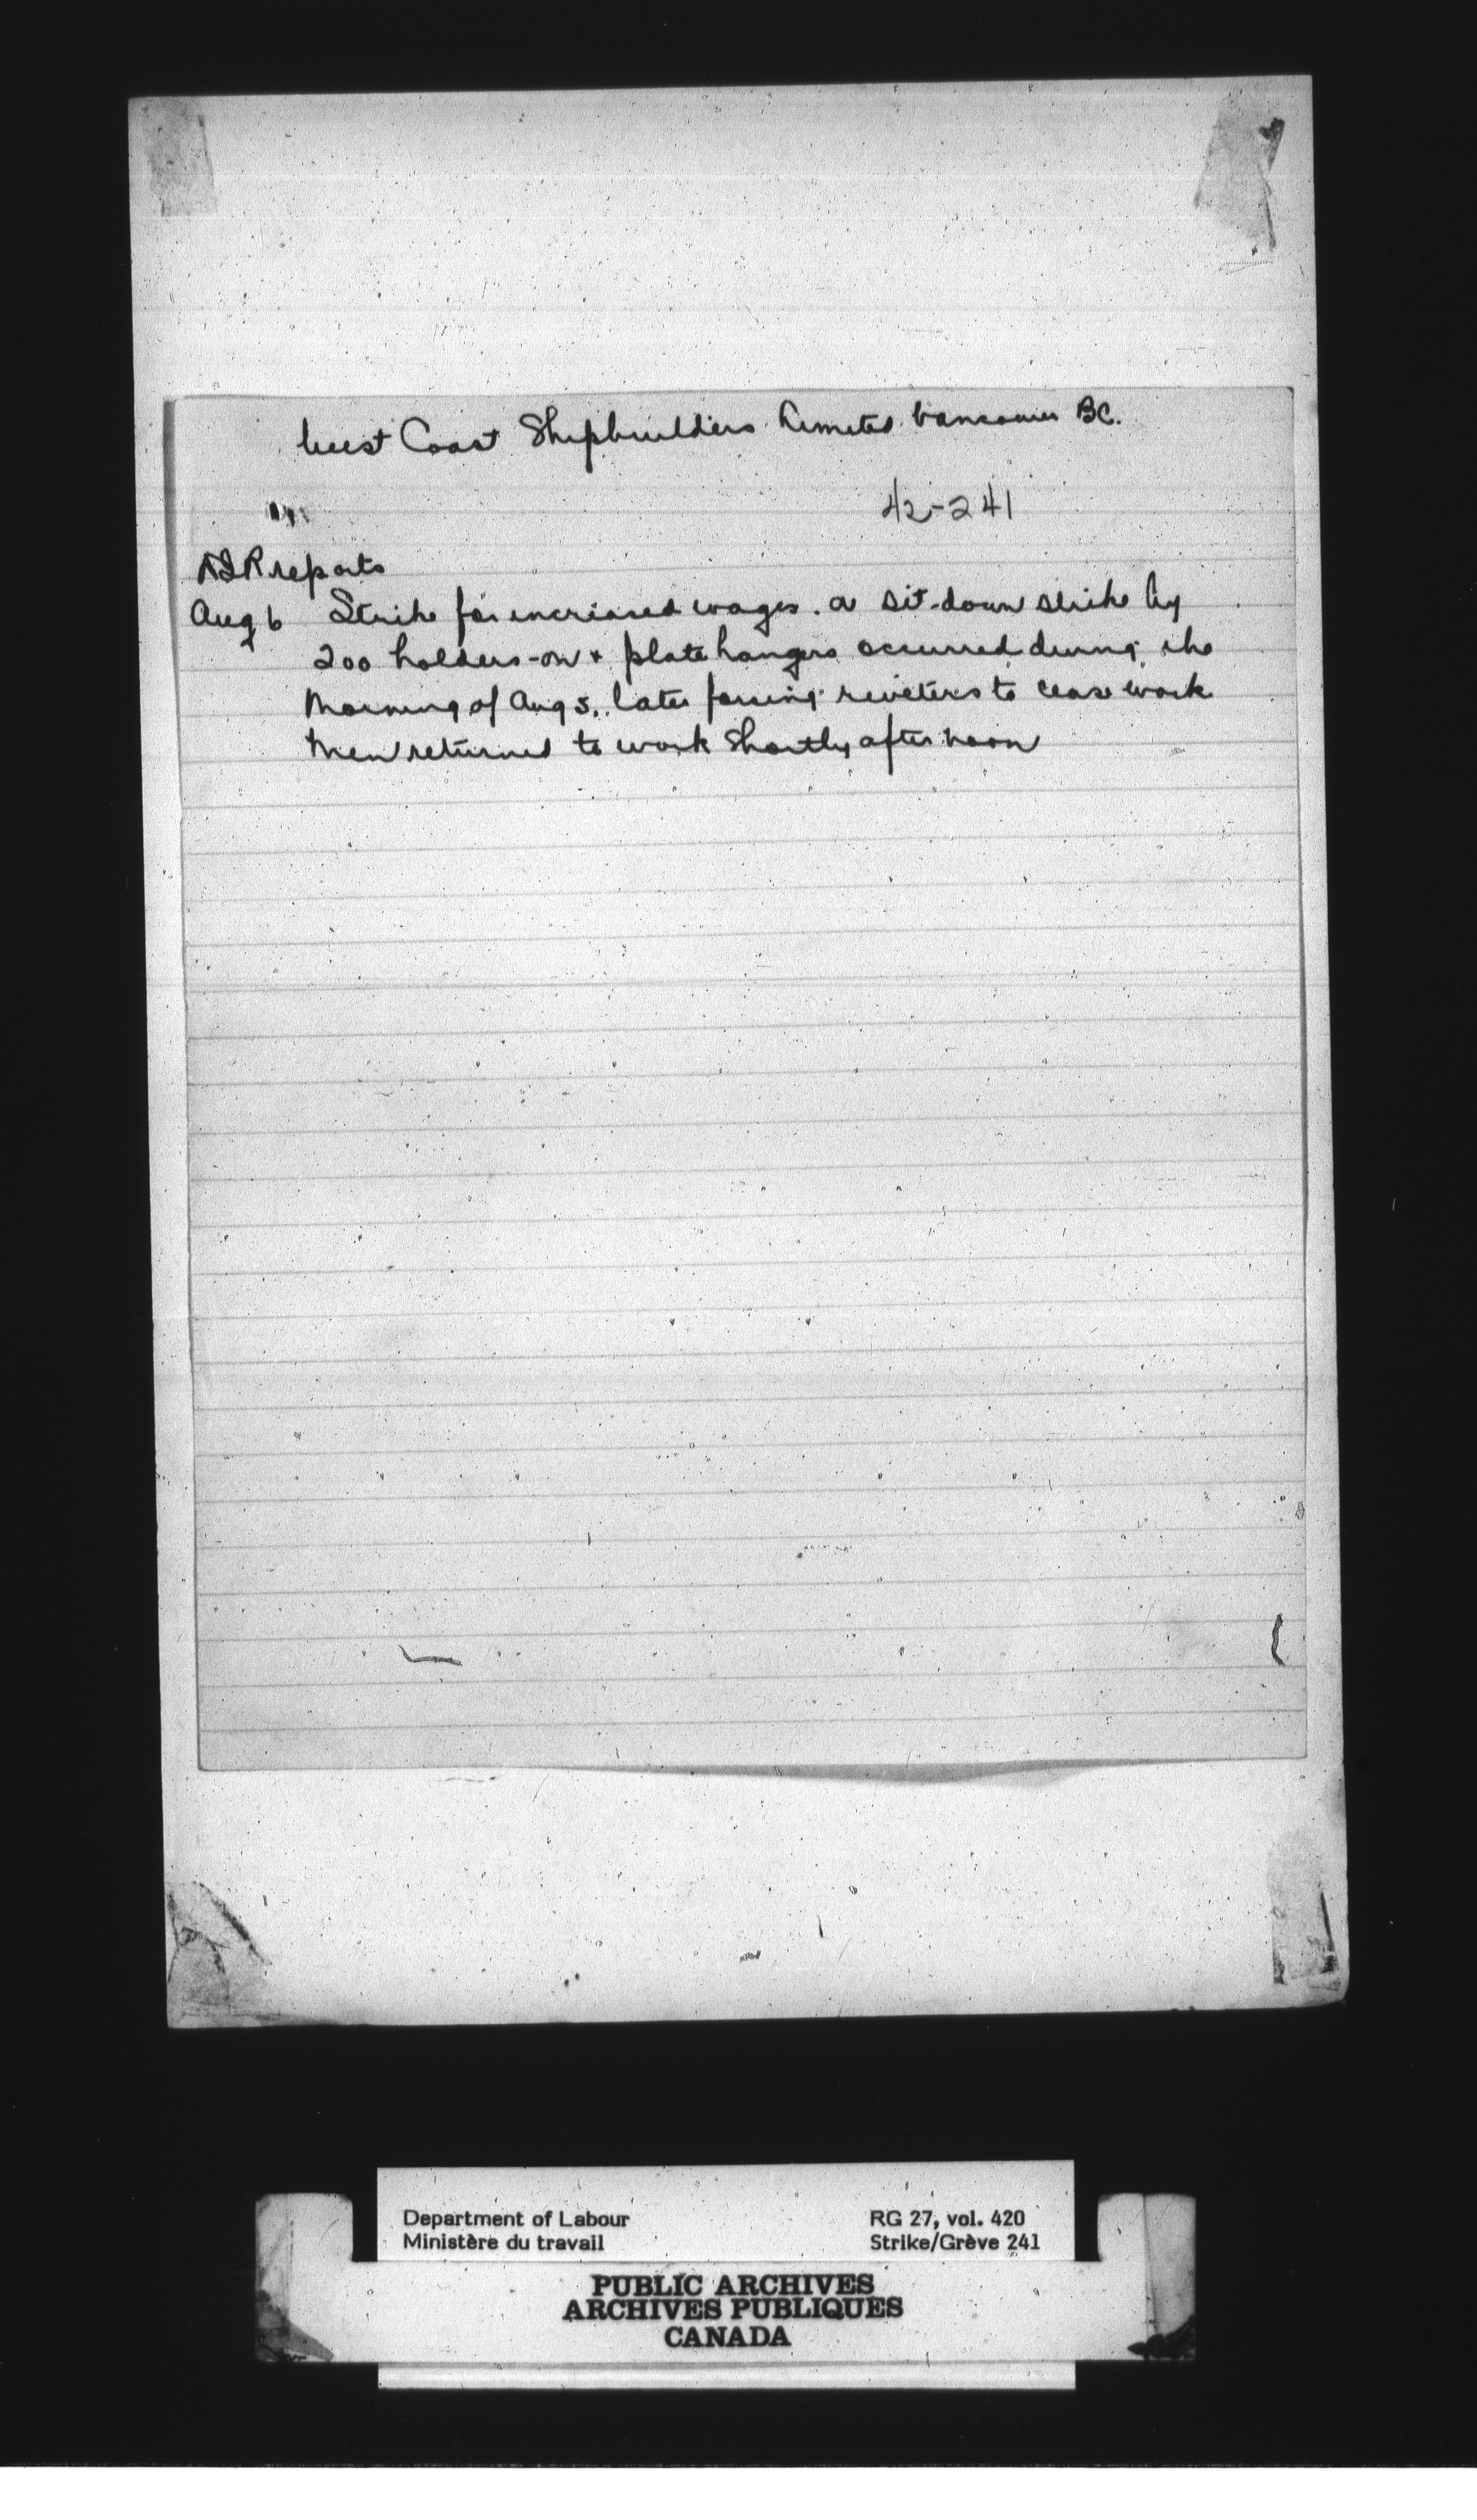 West Coast Shipbuilders Limited Vancouver BC.
42-241
reports
Aug 6 Strike for increased wages. a sit-down strike by
200 holders-on + plate hangers occurred during the
morning of Aug 5, later forcing riveters to cease work
Men returned to work shortly after noon
Department of Labour
Ministère du travail
RG 27, vol. 420
Strike/Grève 241
PUBLIC ARCHIVES
ARCHIVES PUBLIQUES
CANADA